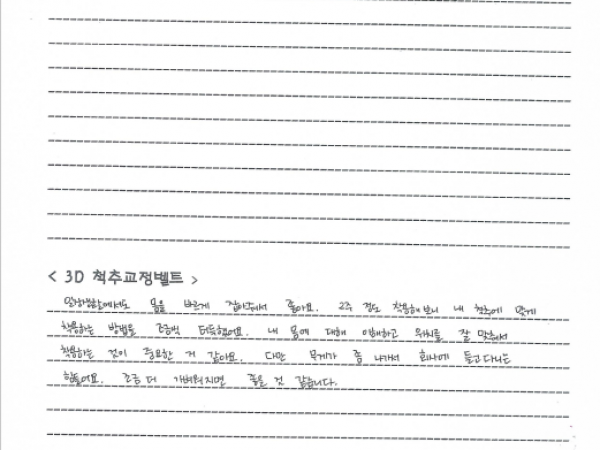 < 3D 척추교정벨트 >
일상생활에서도 몸을 바르게 잡아주어서 좋아요. 2주 정도 착용해보니 내 척추에 맞게
착용하는 방법을 조금씩 터득했어요. 내 몸에 대해 이해하고 위치를 잘 맞춰서
착용하는 것이 중요한 거 같아요. 다만 무게가 좀 나가서 회사에 들고 다니는
힘들어요. 조금 더 가벼워지면 좋을 것 같습니다.